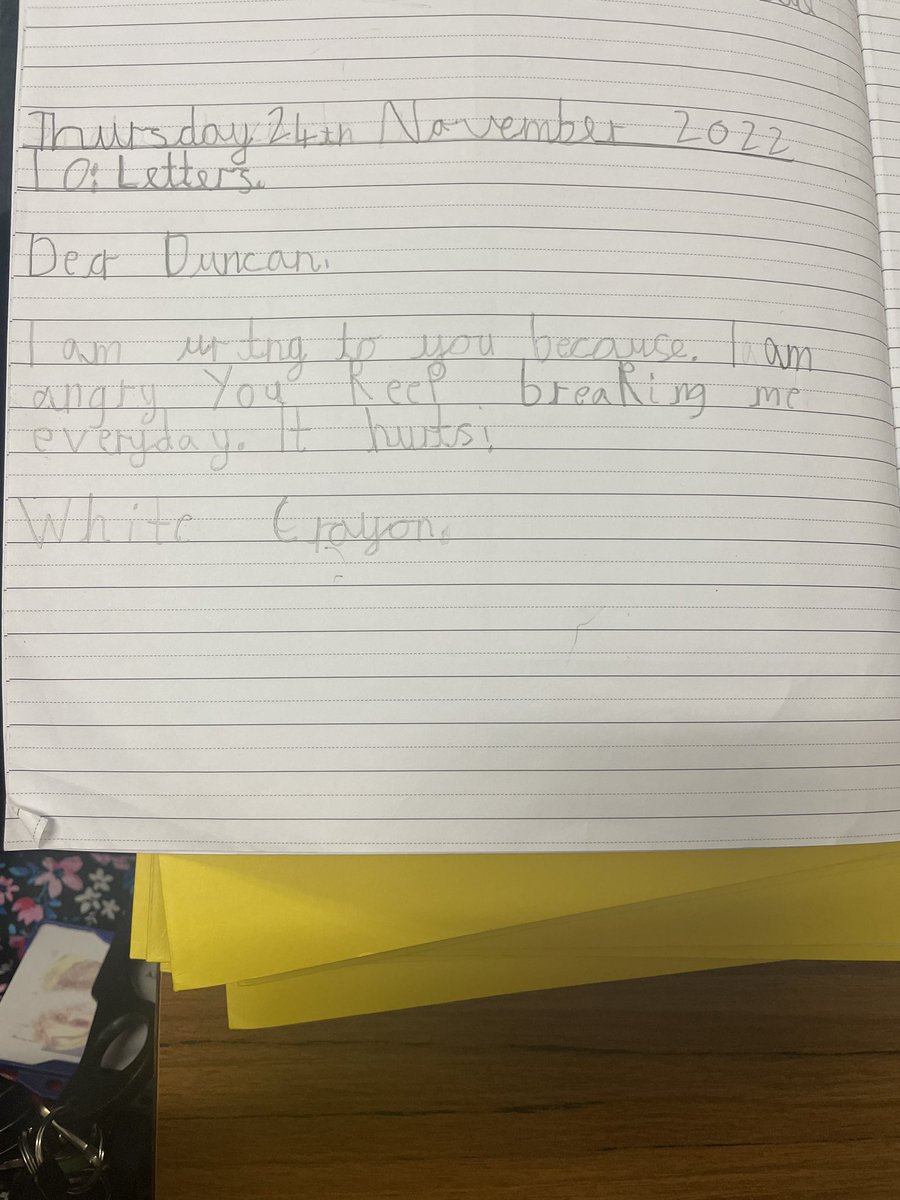 Thursday 24th November 2022
LO: Letters.
Dear Duncan.
I am wrting to you because. I am
angry You keep breaking me
everyday. It hurts!
White Crayon.